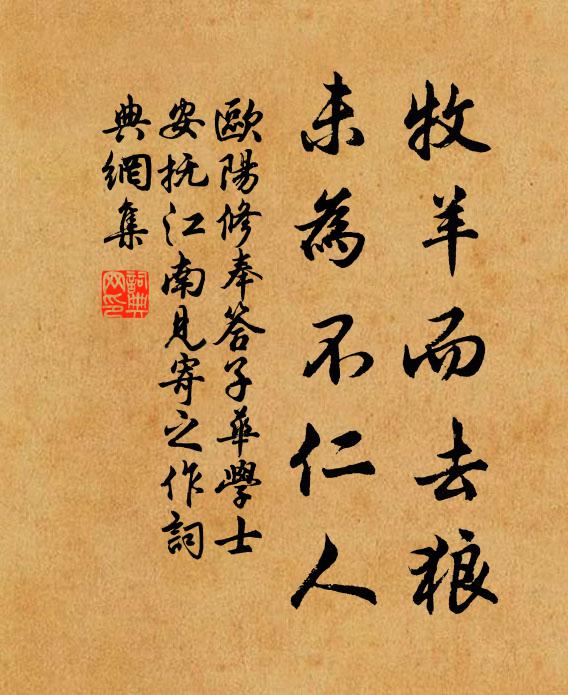 牧羊而去狼
未為不仁人
歐陽修奉答子華學士
安抚江南見寄之作詞
典網集
詞典
网印